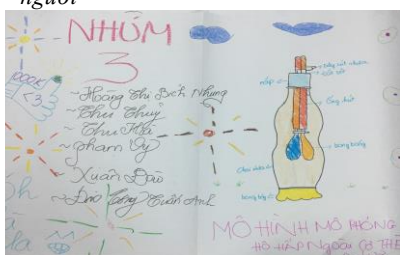 người
NHÓM
3
~Hoàng Thị Bích Nhung
~Thu Thuỷ
~Thu Hà
~Phạm Vy
~Xuân Đào
~Đào Công Tuấn Anh
nắp
ống hút
bóng bay
MÔ HÌNH MÔ PHỎNG
HÔ HẤP NGOÀI CƠ THỂ